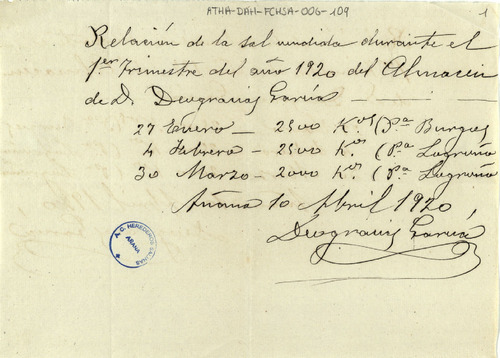 ATHA-DAH-FCHSA-006-109
1
Relación de la sal vendida durante el
1er trimestre del año 1920 del Almacén
de D. Deogracias García
27 Enero — 2500 K.os (Pa Burgos
4 Febrero — 2500 K.os (Pa Logroño
30 Marzo — 2000 K.os (Pa Logroño
Añana 10 Abril 1920,
Deogracias García
A. C. HEREDEROS SALINAS
AÑANA